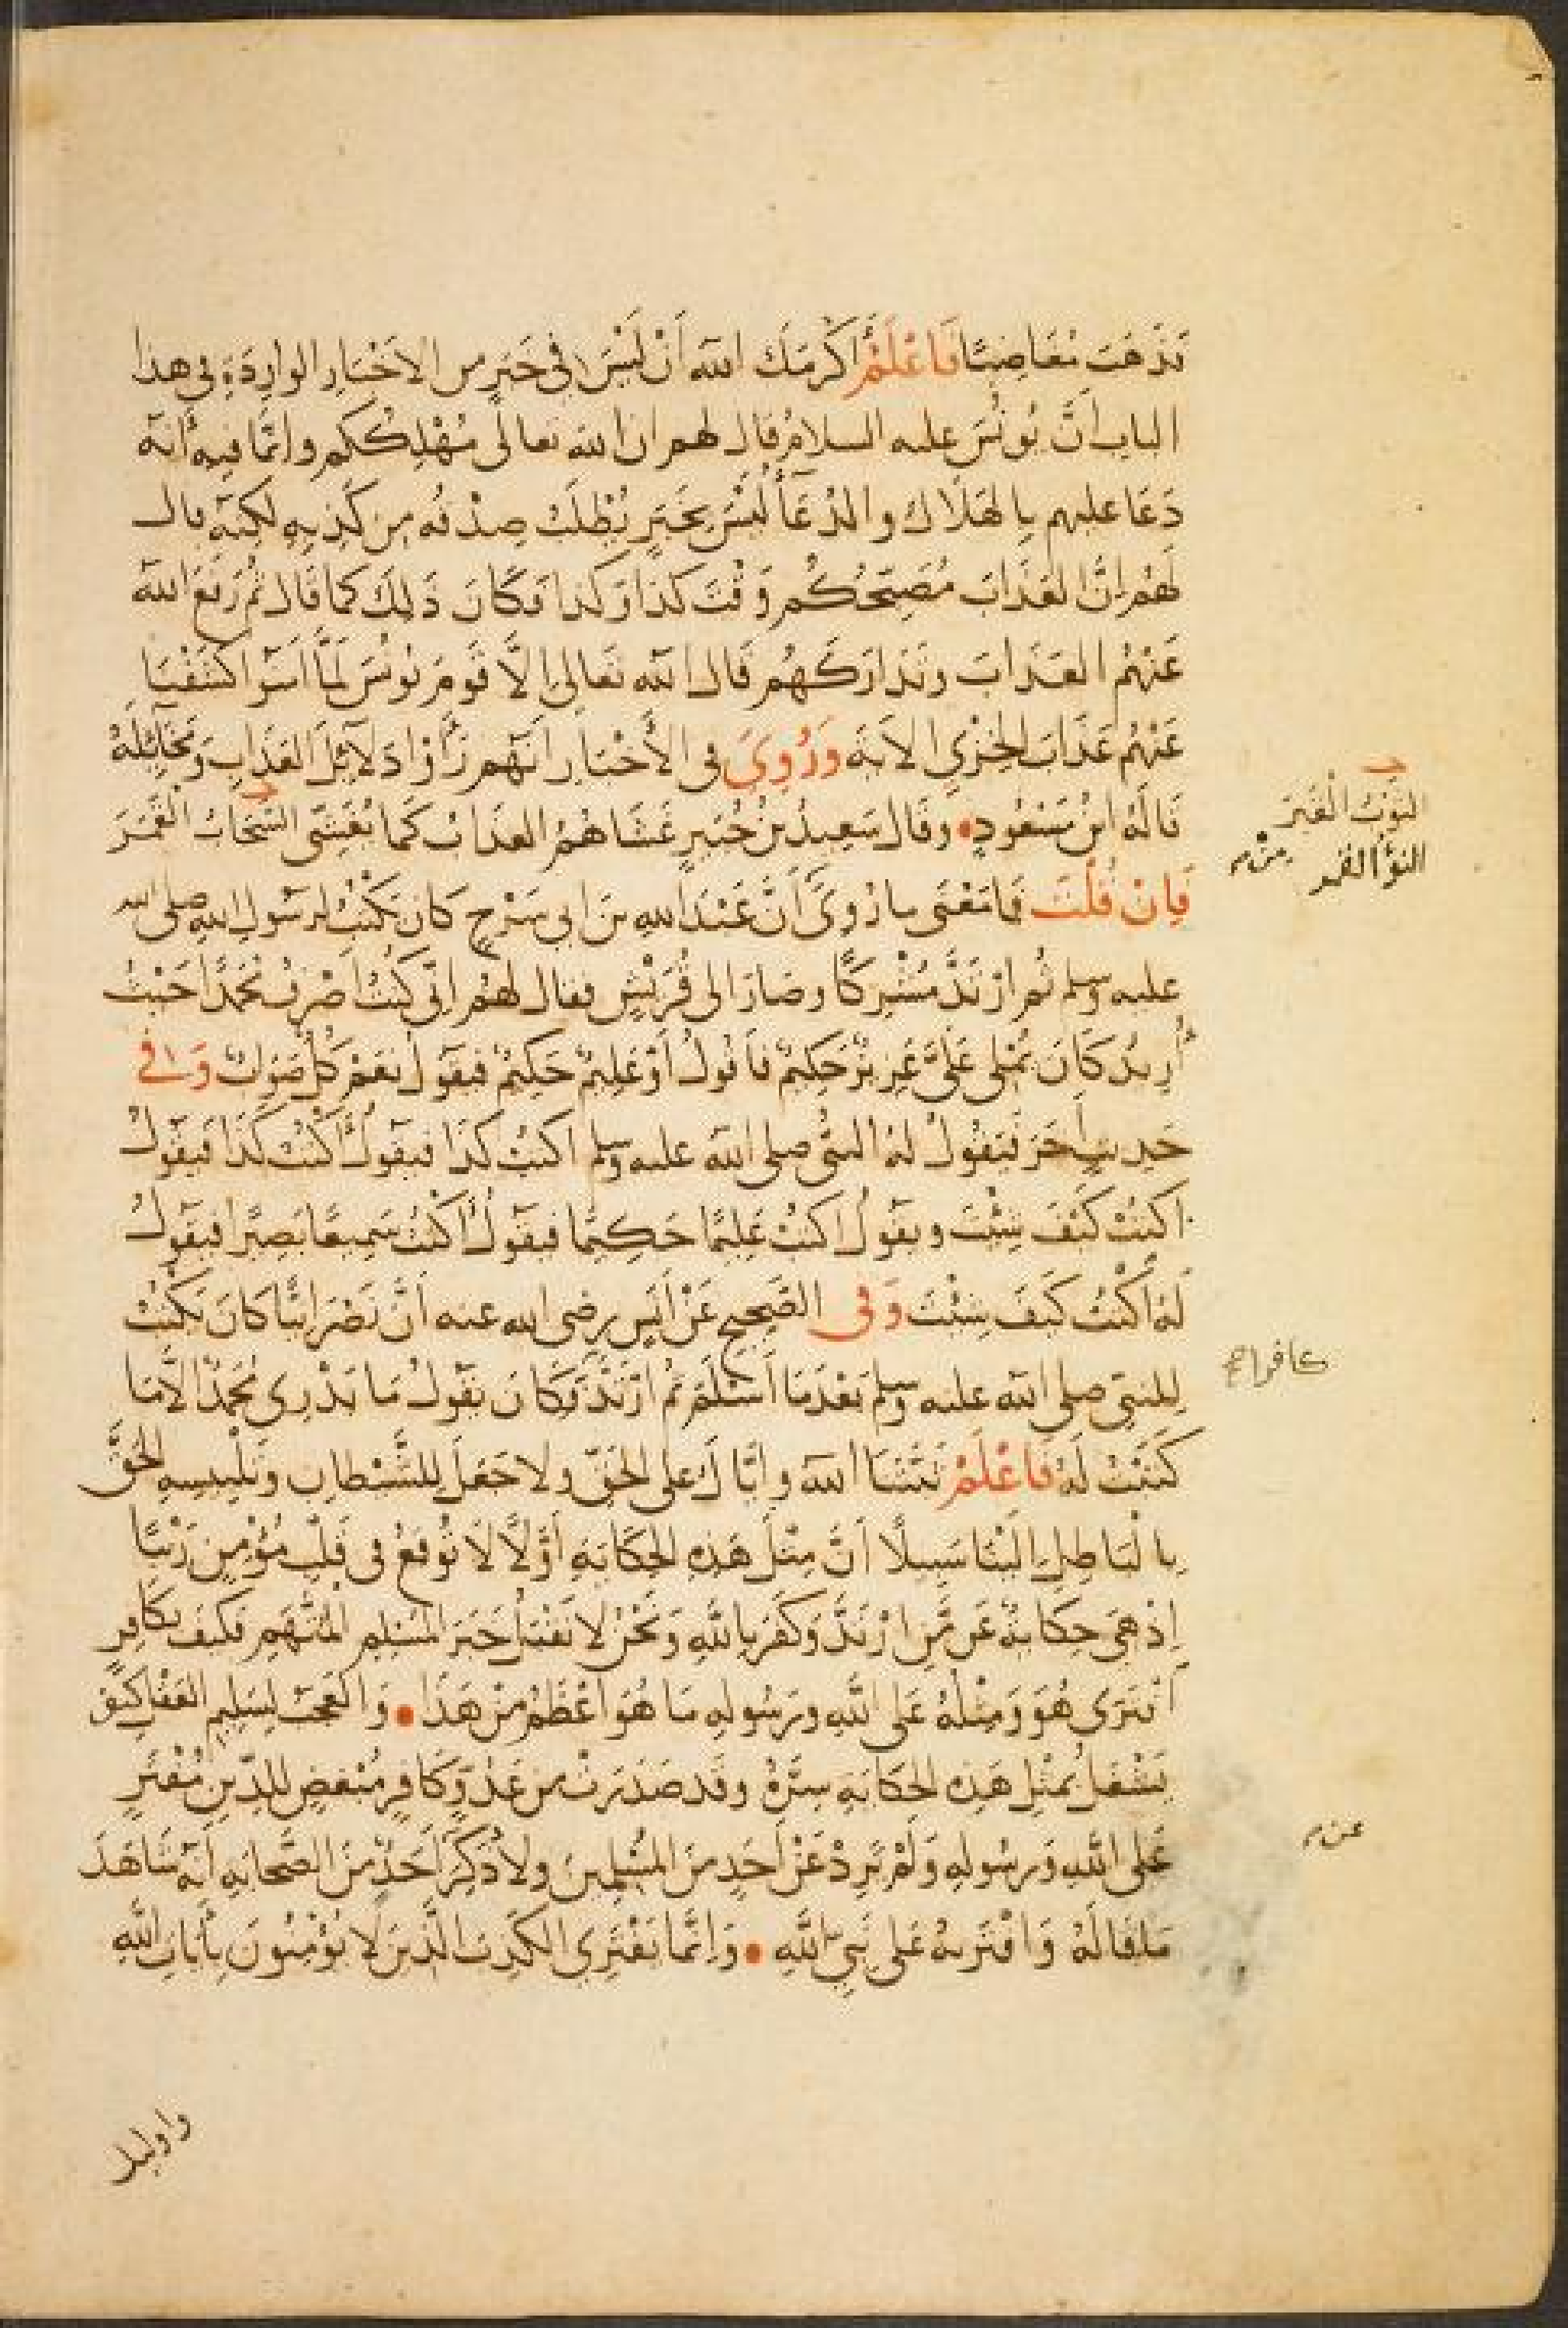 فذهب مغاضبًا فَاعْلَمْ أَكْرَمَكَ الله أَنْ لَيْسَ في خَبَرٍ من الاخْبَارِ الوارِدَةِ في هذا
الباب أَنَّ يُونُسَ عليه السلامُ قال لهم ان الله تعالى مُهْلِكُكم وانّما فيه أنّه
دَعَا عليهم بالهَلَاك والدُعَأُ لَيْسَ بِخَبَرٍ يُطْلَبُ صِدْقُه مِن كَذِبِهِ لكِنّه قال
لَهُمْ إنَّ العَذَابَ مُصَبِّحُكُم وَقْتَ كذَا وَكذا فكَانَ ذَلِكَ كما قَال ثُمَّ رَفَعَ الله
عَنْهُمُ العَذابَ وتَدَارَكَهُم قَال الله تَعَالى إلَّا قَومَ يُونُسَ لَمَّا آمَنُوا كَشَفْنَا
عَنْهُم عَذَابَ الخِزْيِ الاَية وَرُوِيَ في الأَخْبَارِ أَنّهم رَأَوْا دَلائِلَ العَذَابِ ومَخَايِلَهُ
قَالَهُ ابنُ مَسْعُودٍ • وقَال سَعِيدُ بنُ جُبَيرٍ غَشَّاهُمُ العذابُ كَما يُغَشِّى السَّحَابُ القَمَرَ
فَإِنْ قُلْتَ فَما مَعْنَى ما رُوِيَ أَنَّ عَبْدَ اللهِ بنَ ابي سَرْحٍ كان يَكْتُبُ لرَسُولِ اللهِ صلى الله
عليه وسلم ثُم ارْتَدَّ مُشْرِكًا وصَارَ الى قُرَيْشٍ فقال لهُم إنّي كُنْتُ أصْرِفُ مُحَمَّدًا حَيْثُ
أُرِيدُ كَانَ يُمْلِى عَلَيَّ عَزِيزٌ حَكِيمٌ فَأَقُولُ أَوْ عَلِيمٌ حَكِيمٌ فيَقُول نعَمْ كُلٌّ صَوابٌ وَفي
حَديثٍ آخَرَ فَيَقُولُ لهُ النبيُّ صلى الله عليه وسلم اكتبْ كذَا فيَقولُ أَكْتُبُ كَذَا فَيَقُولُ
اكتُبْ كَيْفَ شِئْتَ ويقُول اكتُبْ عَلِيمًا حَكِيمًا فيَقُولُ أَكْتُبُ سَمِيعًا بَصِيرًا فيَقُولُ
لَهُ اُكْتُبْ كَيفَ شِئْتَ وَفي الصَّحِيحِ عَنْ أَنَسٍ رضى الله عنه أنَّ نَصْرَانيًّا كَانَ يَكْتُبُ
لِلنبيّ صلى الله عليه وسلم بَعْدَمَا أَسْلَمَ ثم ارْتَدَّ وَكَانَ يَقُولُ مَا يَدْرِى مُحَمَّدٌ الاَّ مَا
كَتَبْتُ لَهُ فَاعْلَمْ ثَبَّتَنَا الله وايّاكَ على الحَقّ ولا جَعَلَ لِلشَّيْطانِ وتَلْبيسِهِ الحَقَّ
بالْبَاطِلِ إلَيْنَا سَبيلًا أنَّ مِثْلَ هَذِهِ الحِكَايَةِ أَوَّلًا لَا تُوقِعُ في قَلْبِ مُؤْمِنٍ رَيْبًا
إِذْ هِيَ حِكَايةٌ عَن مَّنِ ارْتَدَّ وَكَفَرَ باللَّهِ وَنَحْنُ لا نَقْبَلُ خَبَرَ المُسْلِمِ المُتَّهَمِ فكيفَ بكَافِرٍ
افْتَرَى هُوَ وَمِثْلُهُ عَلَى اللَّهِ ورَسُولِهِ مَا هُوَ اعْظَمُ مِنْ هَذَا • وَالعَجَبُ لِسَلِيمِ العَقْلِ كَيْفَ
يَشْغَلُ بمِثْلِ هَذِهِ الحِكَايَةِ سِرَّهُ وقَد صَدَرَتْ من عَدُوٍّ كَافِرٍ مُبْغِضٍ للدِّينِ مُفْتَرٍ
عَلَى اللَّهِ وَرسُولِهِ وَلَمْ تَرِدْ عَنْ أَحَدٍ مِنَ المُسْلِمينَ ولا ذَكَرَ أَحَدٌ مِنَ الصَّحَابةِ أنّهُ شَاهَدَ
مَا قَالَهُ وَافْتَرَاهُ عَلَى نَبِيِّ اللَّهِ • وَإنَّمَا يَفْتَرِي الكَذِبَ الَّذينَ لَا يُؤْمِنُونَ بِآيَاتِ اللَّهِ
الثوبُ القَبرَ
القمر
كافرا صح
عن
واوليك